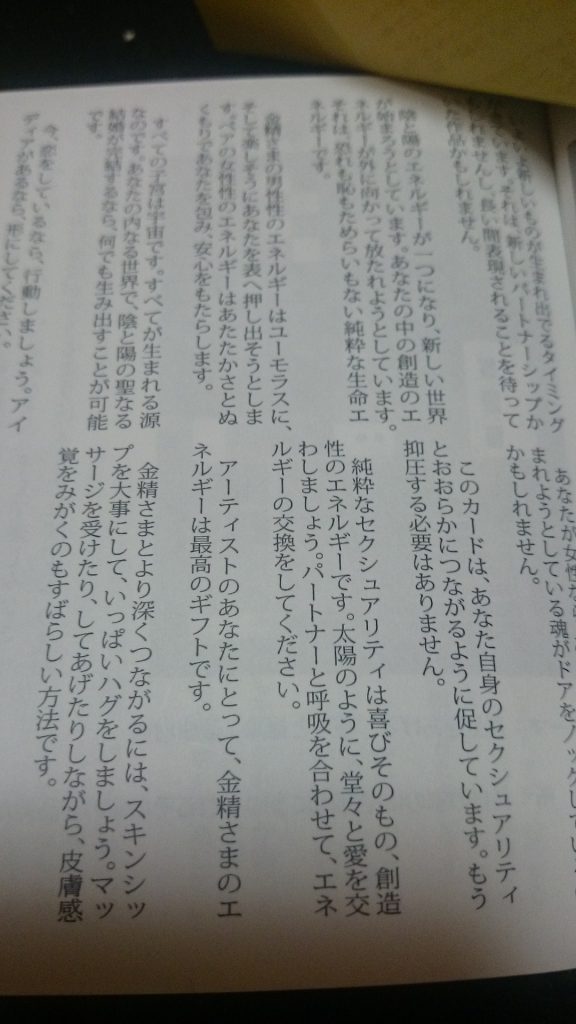 いよいよ新しいものが生まれ出でるタイミング
がきています。それは、新しいパートナーシップか
もしれませんし、長い間表現されることを待って
いた作品かもしれません。
陰と陽のエネルギーが一つになり、新しい世界
が始まろうとしています。あなたの中の創造のエ
ネルギーが外に向かって放たれようとしています。
それは、恐れも恥もためらいもない純粋な生命エ
ネルギーです。
金精さまの男性性のエネルギーはユーモラスに、
そして楽しそうにあなたを表へ押し出そうとしま
す。ペアの女性性のエネルギーはあたたかさとぬ
くもりであなたを包み、安心をもたらします。
すべての子宮は宇宙です。すべてが生まれる源
なのです。あなたの内なる世界で、陰と陽の聖なる
結婚が完結するなら、何でも生み出すことが可能
です。
今、恋をしているなら、行動しましょう。アイ
ディアがあるなら、形にしてください。
あなたが女性なら
まれようとしている魂がドアをノックしてい
かもしれません。
このカードは、あなた自身のセクシュアリティ
とおおらかにつながるように促しています。もう
抑圧する必要はありません。
純粋なセクシュアリティは喜びそのもの、創造
性のエネルギーです。太陽のように、堂々と愛を交
わしましょう。パートナーと呼吸を合わせて、エネ
ルギーの交換をしてください。
アーティストのあなたにとって、金精さまのエ
ネルギーは最高のギフトです。
金精さまとより深くつながるには、スキンシッ
プを大事にして、いっぱいハグをしましょう。マッ
サージを受けたり、してあげたりしながら、皮膚感
覚をみがくのもすばらしい方法です。